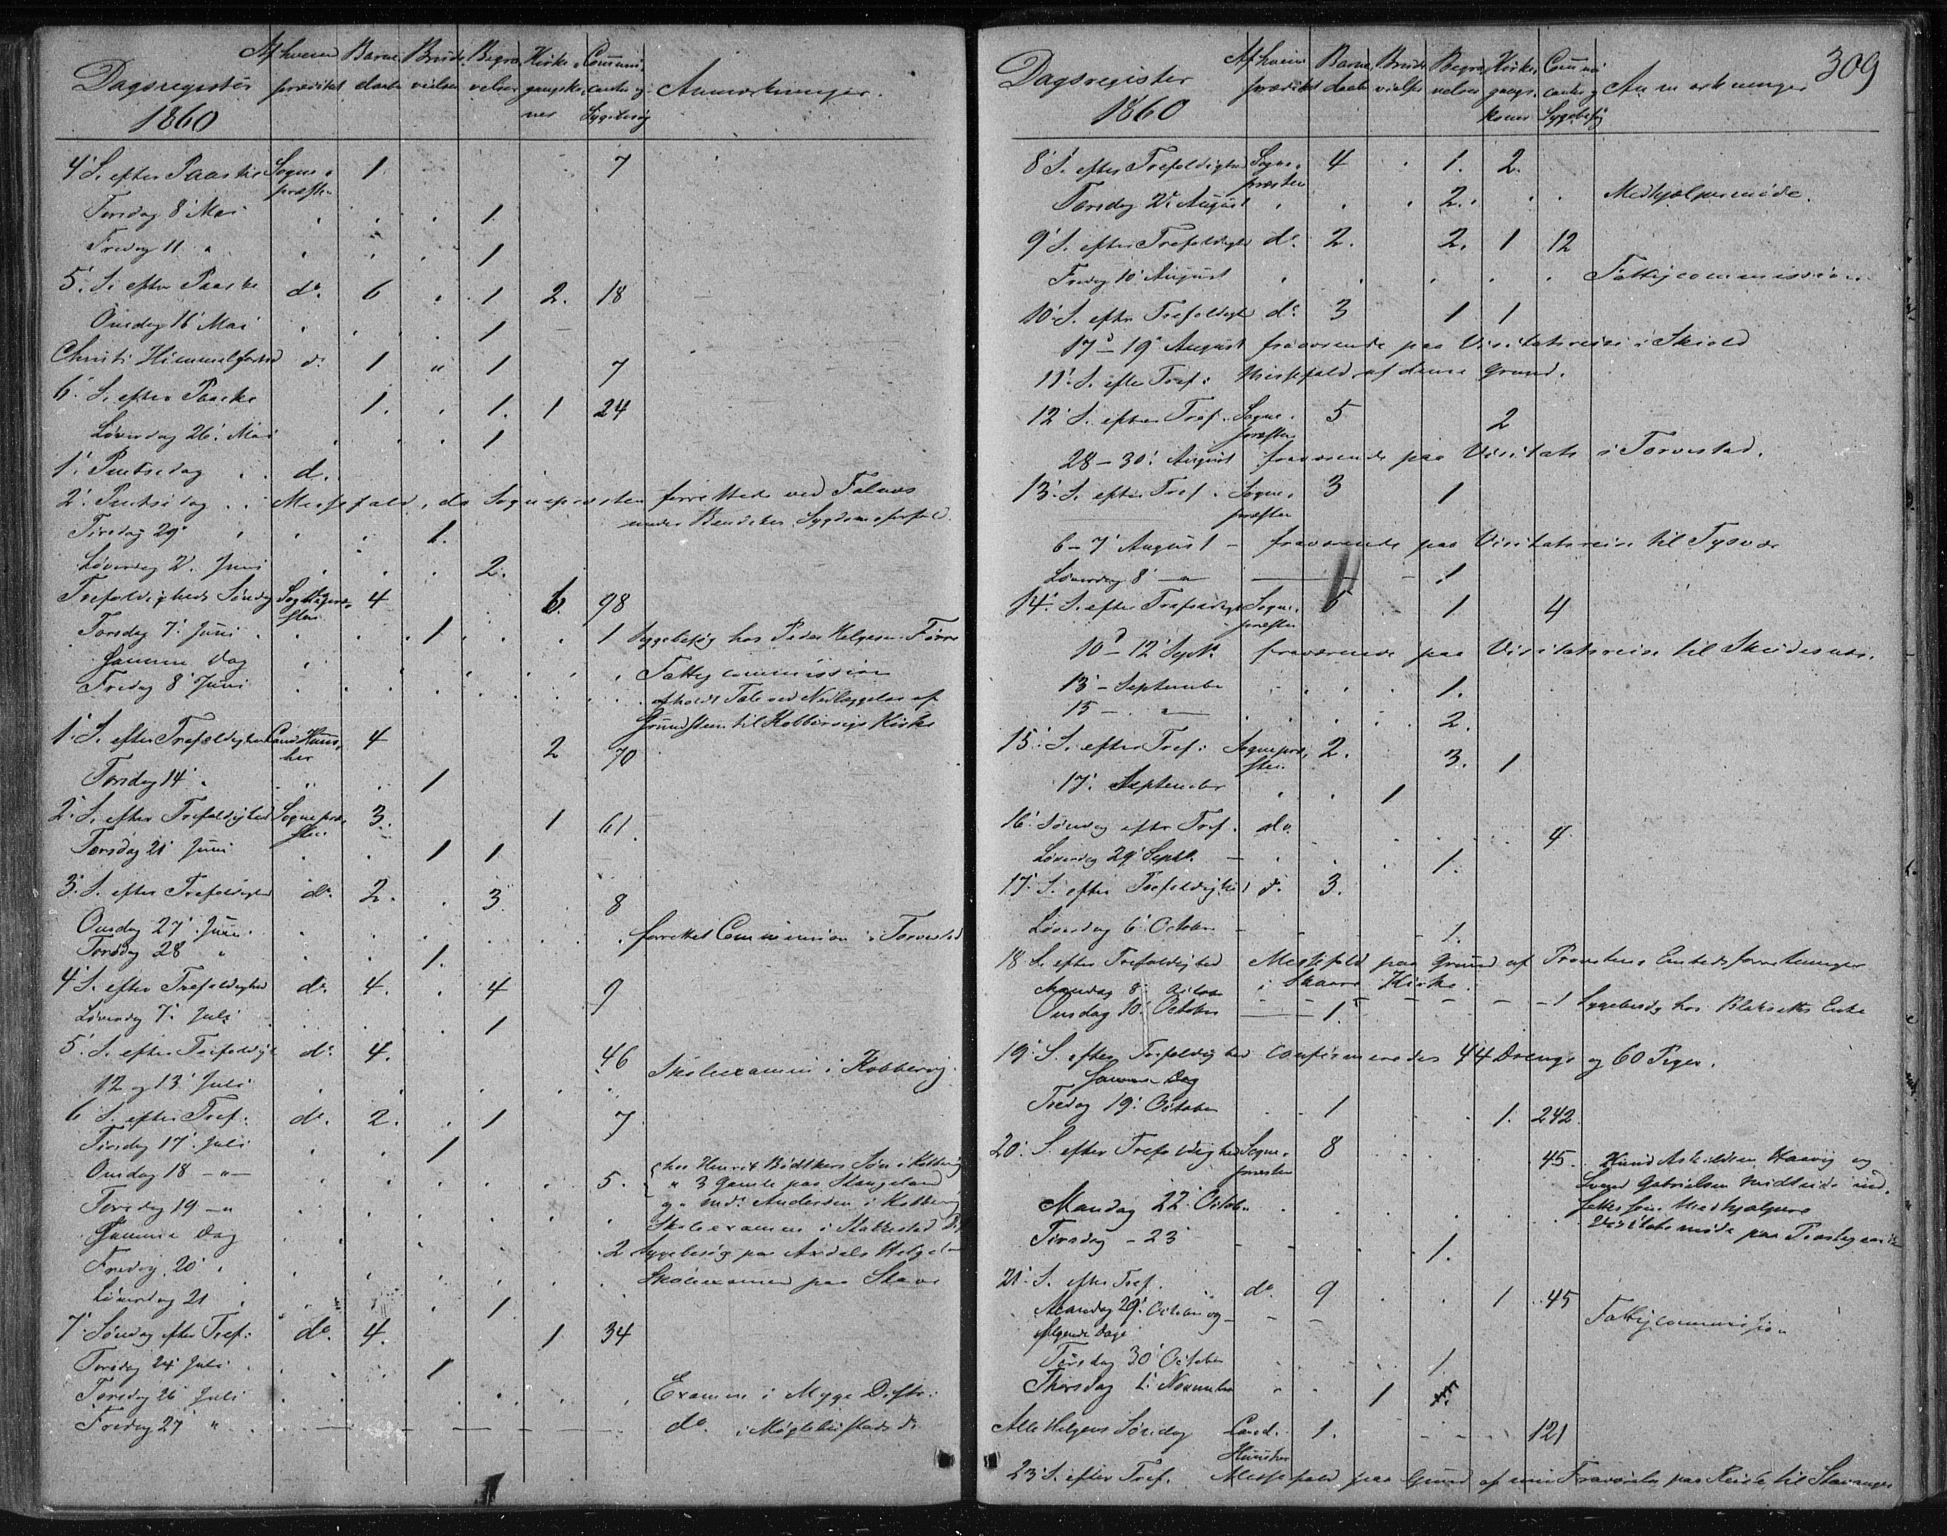 Dagsregister 1860 Af hvem prædiket Barne daabe Brude vielser Begra velser Kirke gangsko ner Communi canter og Sygebesøg Anmærkninger.
4' S. efter Paaske Sogne præsten 1. 7
Torsdag 8' Mai 1.
Fredag 11 " 1
5' S. efter Paaske do. 6 1 2. 18
Onsdag 16' Mai 1
Christi Himmelfartsd d. 1 " 1 7
6' S. efter Paaske 1. 1. 1 24
Løverdag 26' Mai 1
1' Pintsedag d.
2' Pintsedag Messefald, da Sognepræsten forrettede ved Falnæs
under Sygdomsforfald.
Tirsdag 29' 1.
Løverdag 2' Juni 2.
Trefoldigheds Søndag Sognepræ sten 4 6. 98
Torsdag 7' Juni 1 1 Sygebesøg hos Peder Helgesen Førre
Samme Dag Fattigcommission
Fredag 8' Juni afholdt Tale ved Nedlæggelse af
Grundstenen til Kobbervigs Kirke
1' S. efter Trefoldighed Cand. 4 2 70
Torsdag 14' 1
2' S. efter Trefoldighed Sognepræ sten 3. 1 61
Torsdag 21' Juni 1 1
3' S. efter Trefoldighed do. 2. 3. 8
Onsdag 27' Juni forrettet Commission i Torvestad
Torsdag 28 " 1.
4' S. efter Trefoldighed do. 4. 4 9
Løverdag 7' Juli 1
5' S. efter Trefoldigh do. 4. 46
12 og 13' Juli Skoleexamen i Kobbervig.
6 S. efter Tref: do. 2. 1 7
Tirsdag 17' Juli 1
Onsdag 18 — " — 5. hos Henrik Bødtkers Søn i Kobbervig
" 3 Gamle paa Stangeland
og Md. Andersen i Kobbervig
Torsdag 19 — " Skoleexamen i Stakkestad D.
Samme Dag 2 Sygebesøg paa
Fredag 20' Skoleexamen paa
Løverdag 21 1
7' Søndag efter Tref: do. 4. 1 34
Tirsdag 24' Juli 1
Torsdag 26' Juli Examen i Myge Distr:
Fredag 27 " do. i do
309
Dagsregister 1860 Af hvem prædiket Barne daabe Brude vielser Begra velser Kirke gangs koner Communi canter og Sygebesøg Anmærkninger
8' S. efter Trefoldighed Sogne præsten 4 1. 2.
Torsdag 2' August 2. Medhjælpermøde.
9' S. efter Trefoldighed do. 2. 2. 1 12
Fredag 10' August Fattigcommission
10' S. efter Trefoldighed do. 3 1 1
17' — 19' August fraværende paa Visitatsreise i Skiold
11' S. efter Tref: Messefald af denne Grund.
12' S. efter Tref. Sogne præsten 5 2
28 — 30' August fraværende paa Visitats i Torvestad.
13' S. efter Tref. Sogne præsten 3 1
6 — 7' August — fraværende paa Visitatsreise til Tysvær
Løverdag 8' — " 1
14' S. efter Trefoldigh Sogne præsten 5 1 4
10' — 12' Sept. fraværende paa Visitatsreise til Skudesnæs.
13 — September 1.
15 — " 2.
15' S. efter Tref: Sognepræ sten 2. 3. 1
17' September 1
16' Søndag efter Tref. do. 4.
Løverdag 29' Septb. 1.
17' S. efter Trefoldighed d. 3.
Løverdag 6' October 1.
18 S. efter Trefoldighed Messefald paa Grund af Provstens Embedsforretninger
i Skaare Kirke.
Mandag 8' October
Onsdag 10' October 1. 1 Sygebesøg hos Enke
19' S. efter Trefoldighed confirmeredes 44 Drenge og 60 Piger.
Samme Dag
Fredag 19' October 1 1. 242
20' S. efter Trefoldighed Sogne præsten 8 45. Knud Askildsen Haavig og
Svend Gabrielsen ind
sattes som Medhjælpere
Mandag 22' October møde paa Præstegaarden
Tirsdag — 23 1.
21' S. efter Tref. do. 9 1 45
Mandag 29' October og
følgende Dage Fattigcommission
Tirsdag 30' October 1
Thorsdag 1' November 1
Alle Helgens Søndag Cand. 1. 121
23' S. efter Tref. Messefald paa Grund af min Fraværelse paa Reise til Stavanger